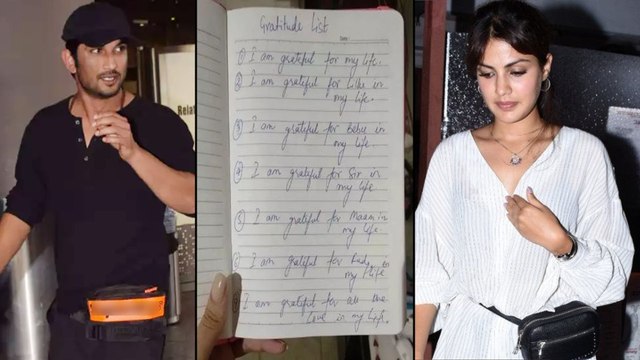 Gratitude List
Date:
1) I am grateful for my life.
2) I am grateful for Lillu in
my life.
3) I am grateful for Bebu in
my life
4) I am grateful for Sir in
my life
5) I am grateful for Maam in
my life.
6) I am grateful for in
my life
7) I am grateful for all the
love in my life.
Relat